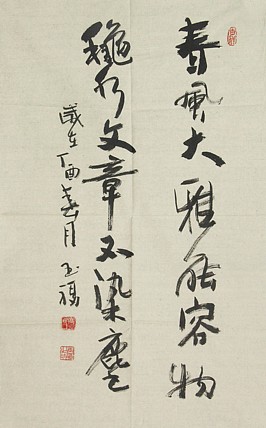 春風大雅能容物
穐水文章不染塵
歲在丁酉春月